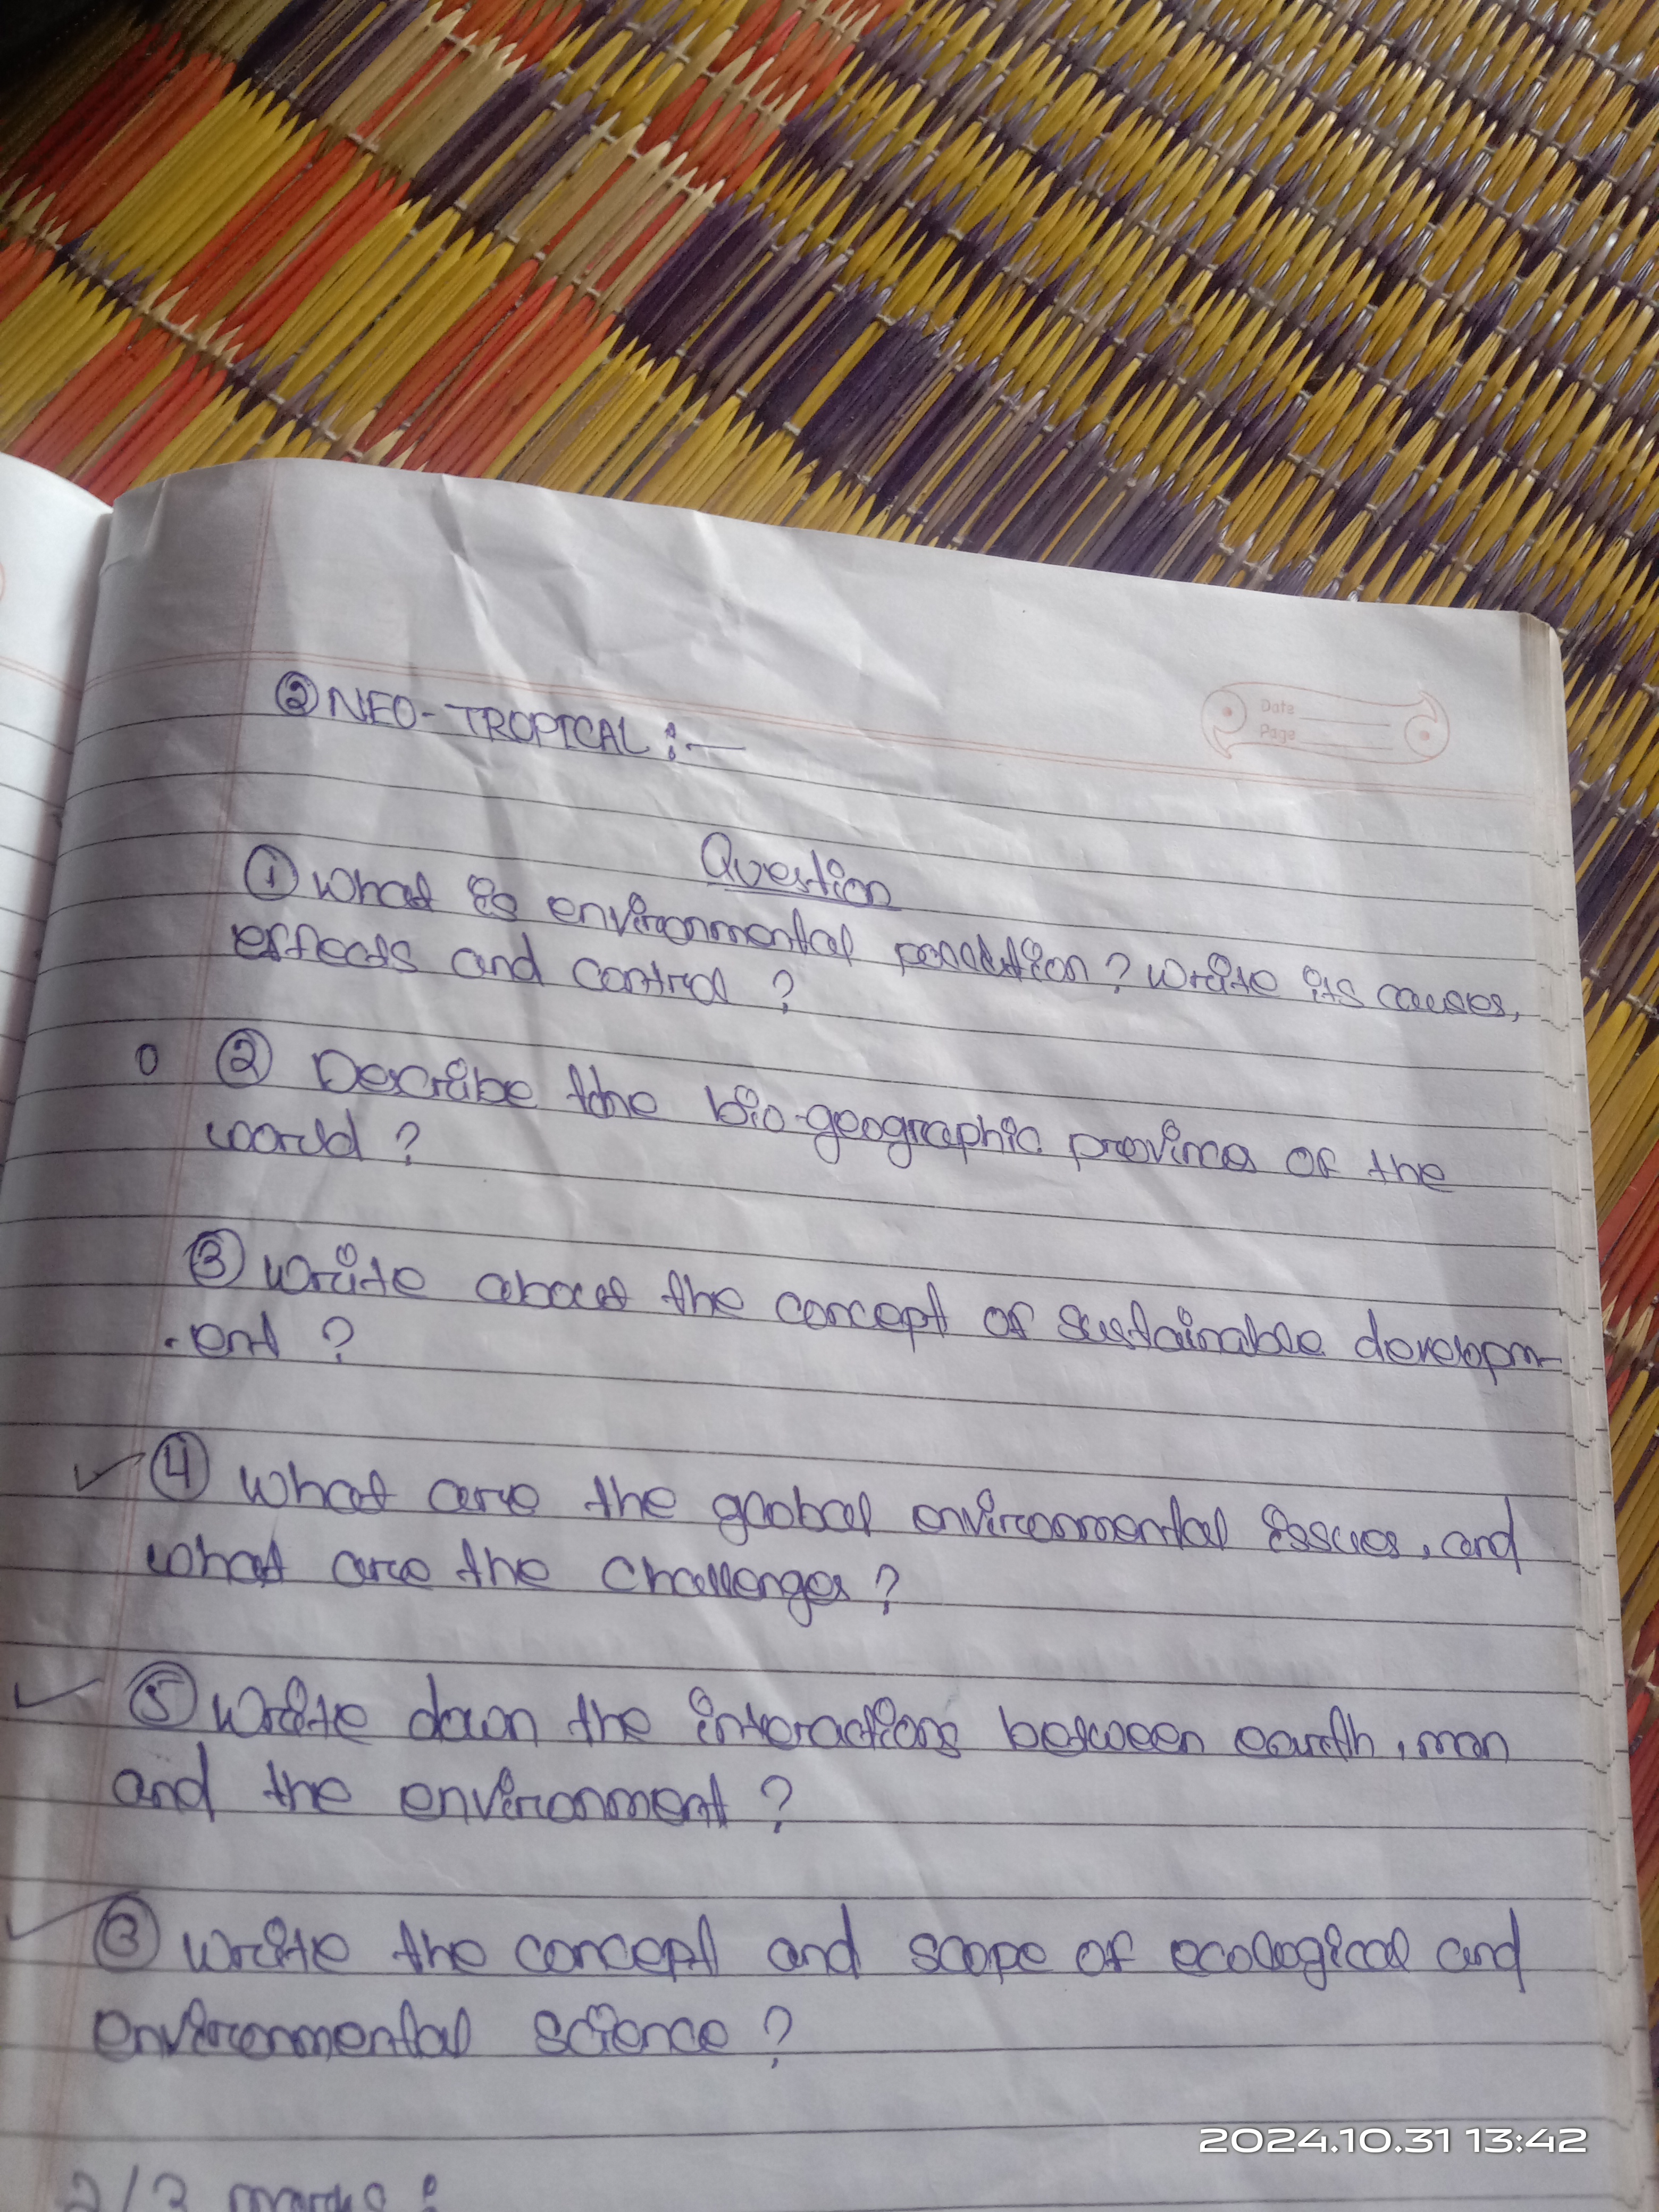 ② NEO-TROPICAL :—
Date
Page
Question
① What is environmental pollution? Write its causes,
effects and control ?
0 ② Describe the bio-geographic province of the
world ?
③ Write about the concept of sustainable developm-
.ent ?
④ What are the gloobal environmental issues, and
what are the challenges ?
⑤ Write down the interactions between earth, man
and the environment ?
③ Write the concept and scope of ecological and
environmental science ?
2/3 marks :
2024.10.31 13:42